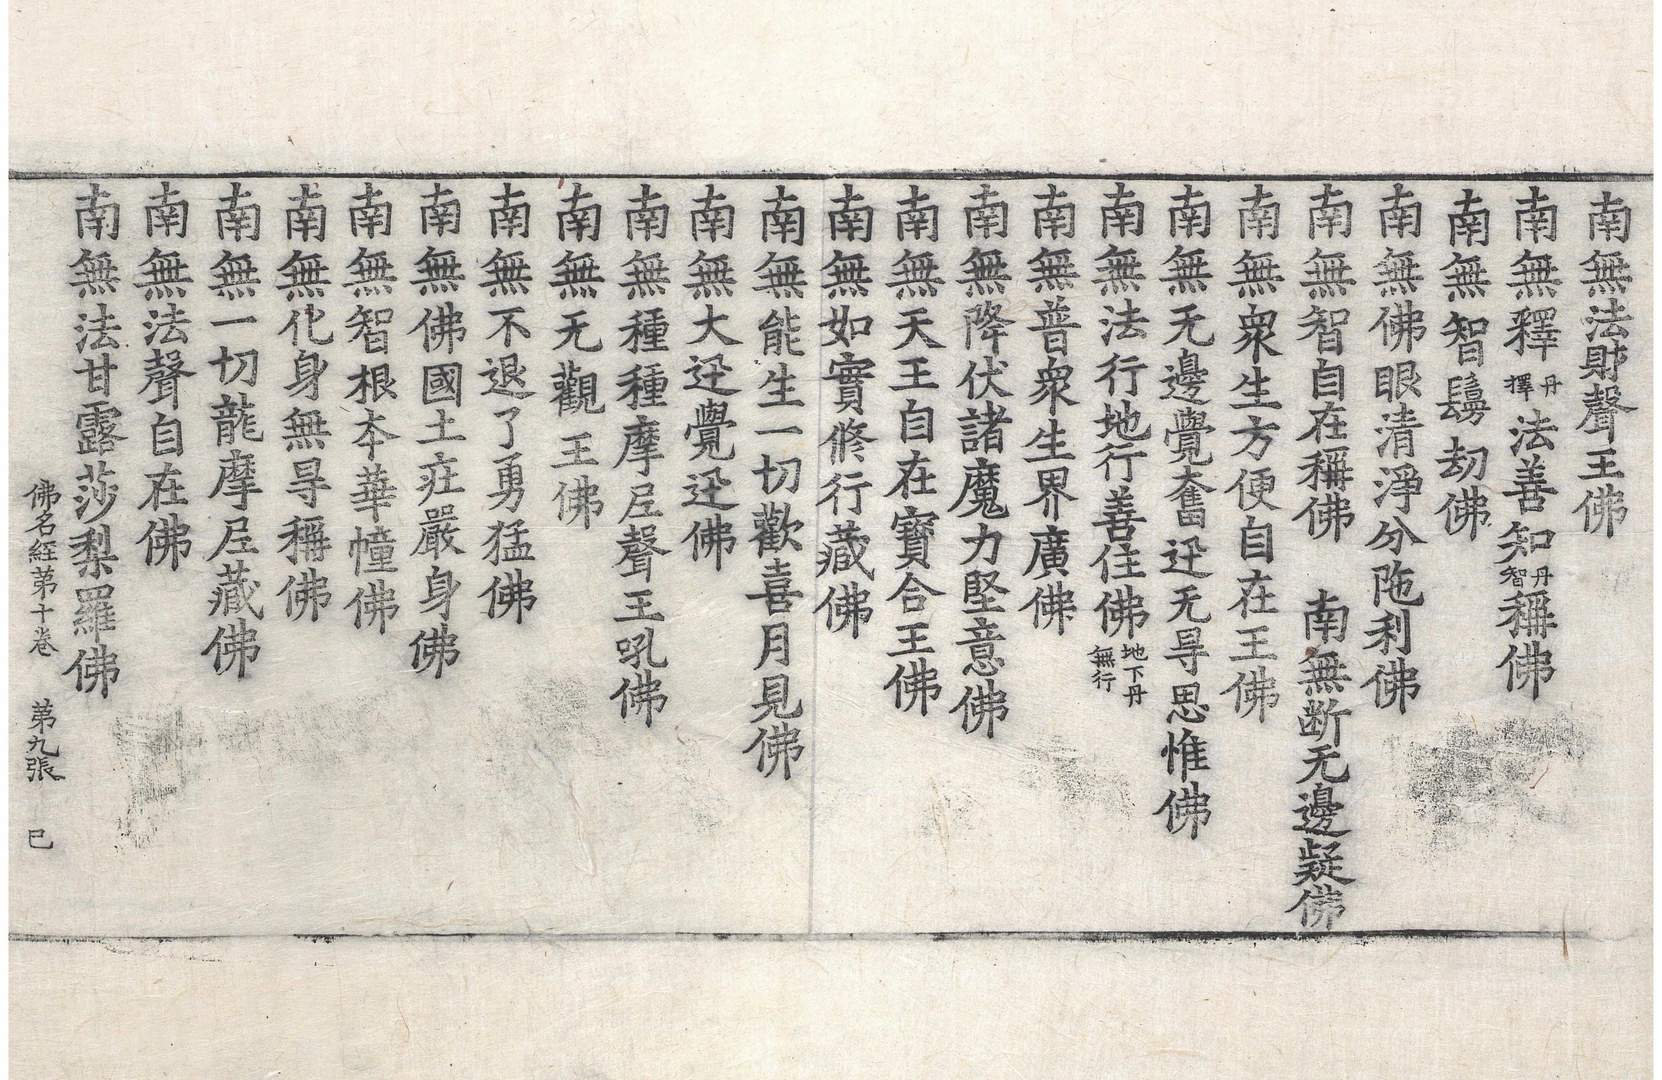 南無法財聲王佛
南無釋丹擇法善知丹智稱佛
南無智鬘劫佛
南無佛眼清淨分陁利佛
南無智自在稱佛　南無断无邊疑佛
南無衆生方便自在王佛
南無无邊覺奮迅无㝵思惟佛
南無法行地行善住佛地下丹無行
南無普衆生界廣佛
南無降伏諸魔力堅意佛
南無天王自在寳合王佛
南無如實修行藏佛
南無能生一切歡喜月見佛
南無大迅覺迅佛
南無種種摩尼聲王吼佛
南無无觀王佛
南無不退了勇猛佛
南無佛國土莊嚴身佛
南無智根本華幢佛
南無化身無㝵稱佛
南無一切龍摩尼藏佛
南無法聲自在佛
南無法甘露莎梨羅佛
佛名経第十卷　第九張　巳